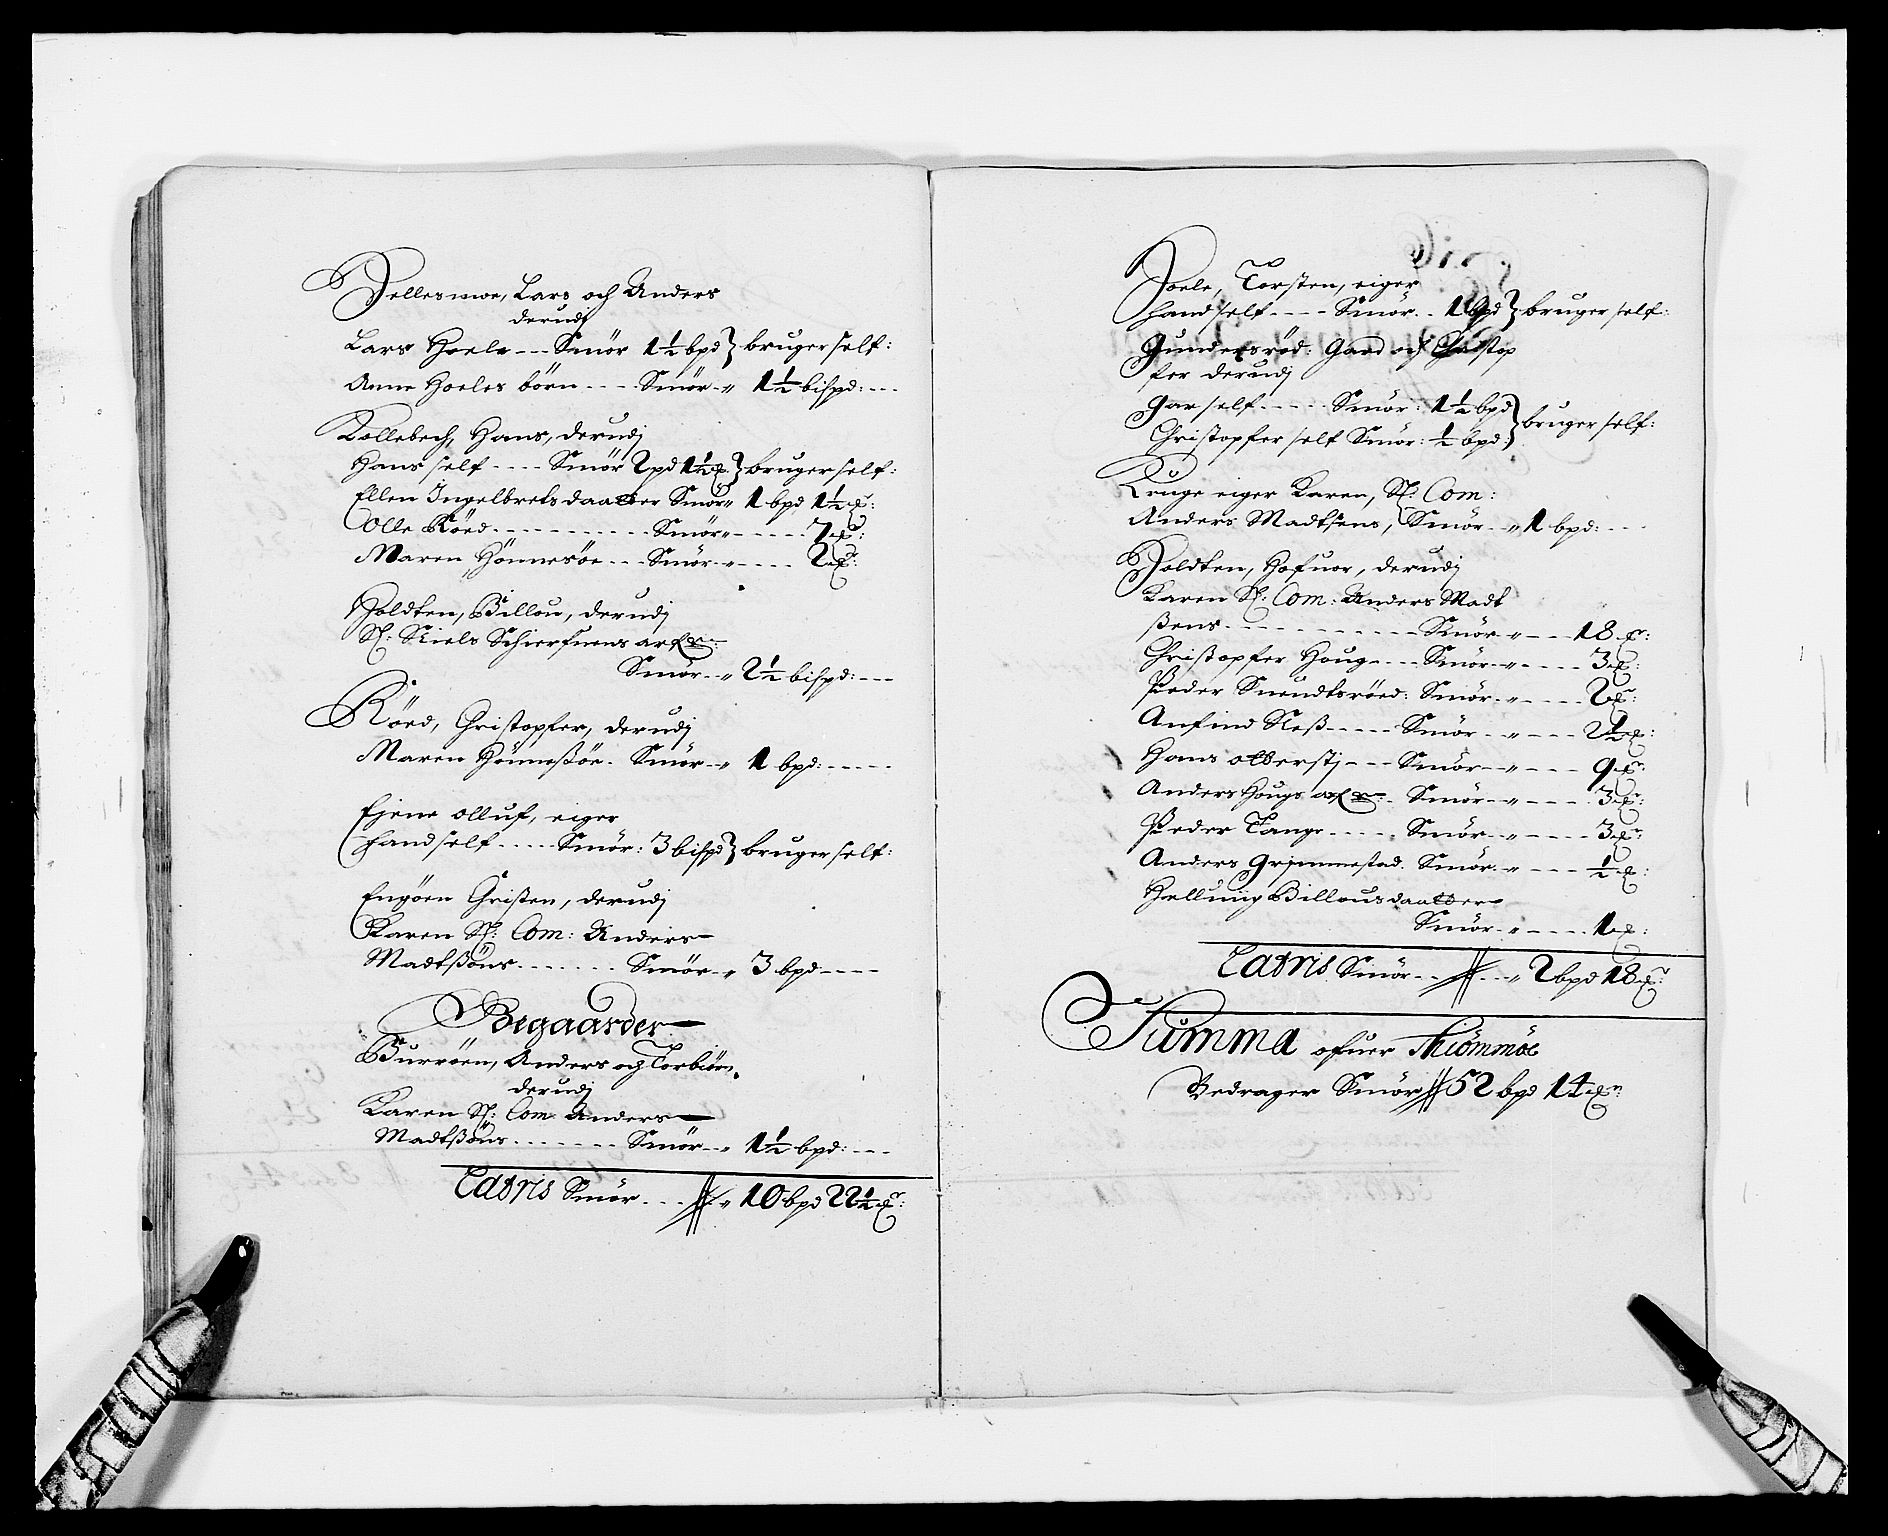 Hellesmoe, Lars och Anders
derudj
Lars Hoele --- Smör 1½ bpd } bruger self:
Anne Hoeles börn ---- Smör-„ 1½ bispd: ---
Kollebech, Hans, derudj
Hans self ---- Smör 2 pd 1½ } bruger self:
Ellen Ingelbretsdaatter Smör„ 1 bpd 1½
Olle Röed --------- Smör„ ----- 7
Maren Hönnesöe --- Smör-„ ---- 2
Holdten, Billou, derudj
Sl: Niels Schierfuens
Smör--„ 2½ bispd: ---
Röed, Christopfer, derudj
Maren Hönnesßöe - Smör--„ 1 bpd: -----
Ejene olluf, eiger
hand self ----- Smör: 3 bispd } bruger self:
Engöen Christen, derudj
Karen Sl: Com: Anders
Madtßöns ------- Smör--„ 3 bpd ----
Ödegaarder
Burröen, Anders och Torbiörn,
derudj
Karen Sl: Com: Anders
Madtßöns ------- Smör--„ 1½ bpd: ---
Latris Smör --- „ 10 bpd 22½
Hoele, Torsten, eiger
hand self ---- Smör -- 1 bpd } bruger self:
Gundersröd: Gard och Christop
fer derudj
Gar self ----- Smör: 1½ bpd
Christopfer self Smör: ½ bpd: } bruger self:
Kruge eiger Karen, Sl: Com:
Anders Madtsens, Smör--„ 1 bpd: ---
Holdten, Hofuor, derudj
Karen Sl: Com: Anders Madt
ßens ---------- Smör-„ --- 18
Christopfer Houg ---- Smör-„ ----- 3
Peder Suendtsröed: Smör-„ ----- 2
Anfind Neß ----- Smör--„ --- 2½
Hans olberstj --- Smör--„ --- 9
Anders Hougs Smör--„ ---- 3
Peder Tange ----- Smör--„ ---- 3
Anders Grimmestad. Smör-„ --- ½
Helluig Billousdaatter
Smör-„ ---- 1
Latris Smör-- „ 2 bpd 18
Summa ofuer Thiömmöe
Bedrager Smör 52 bpd 14